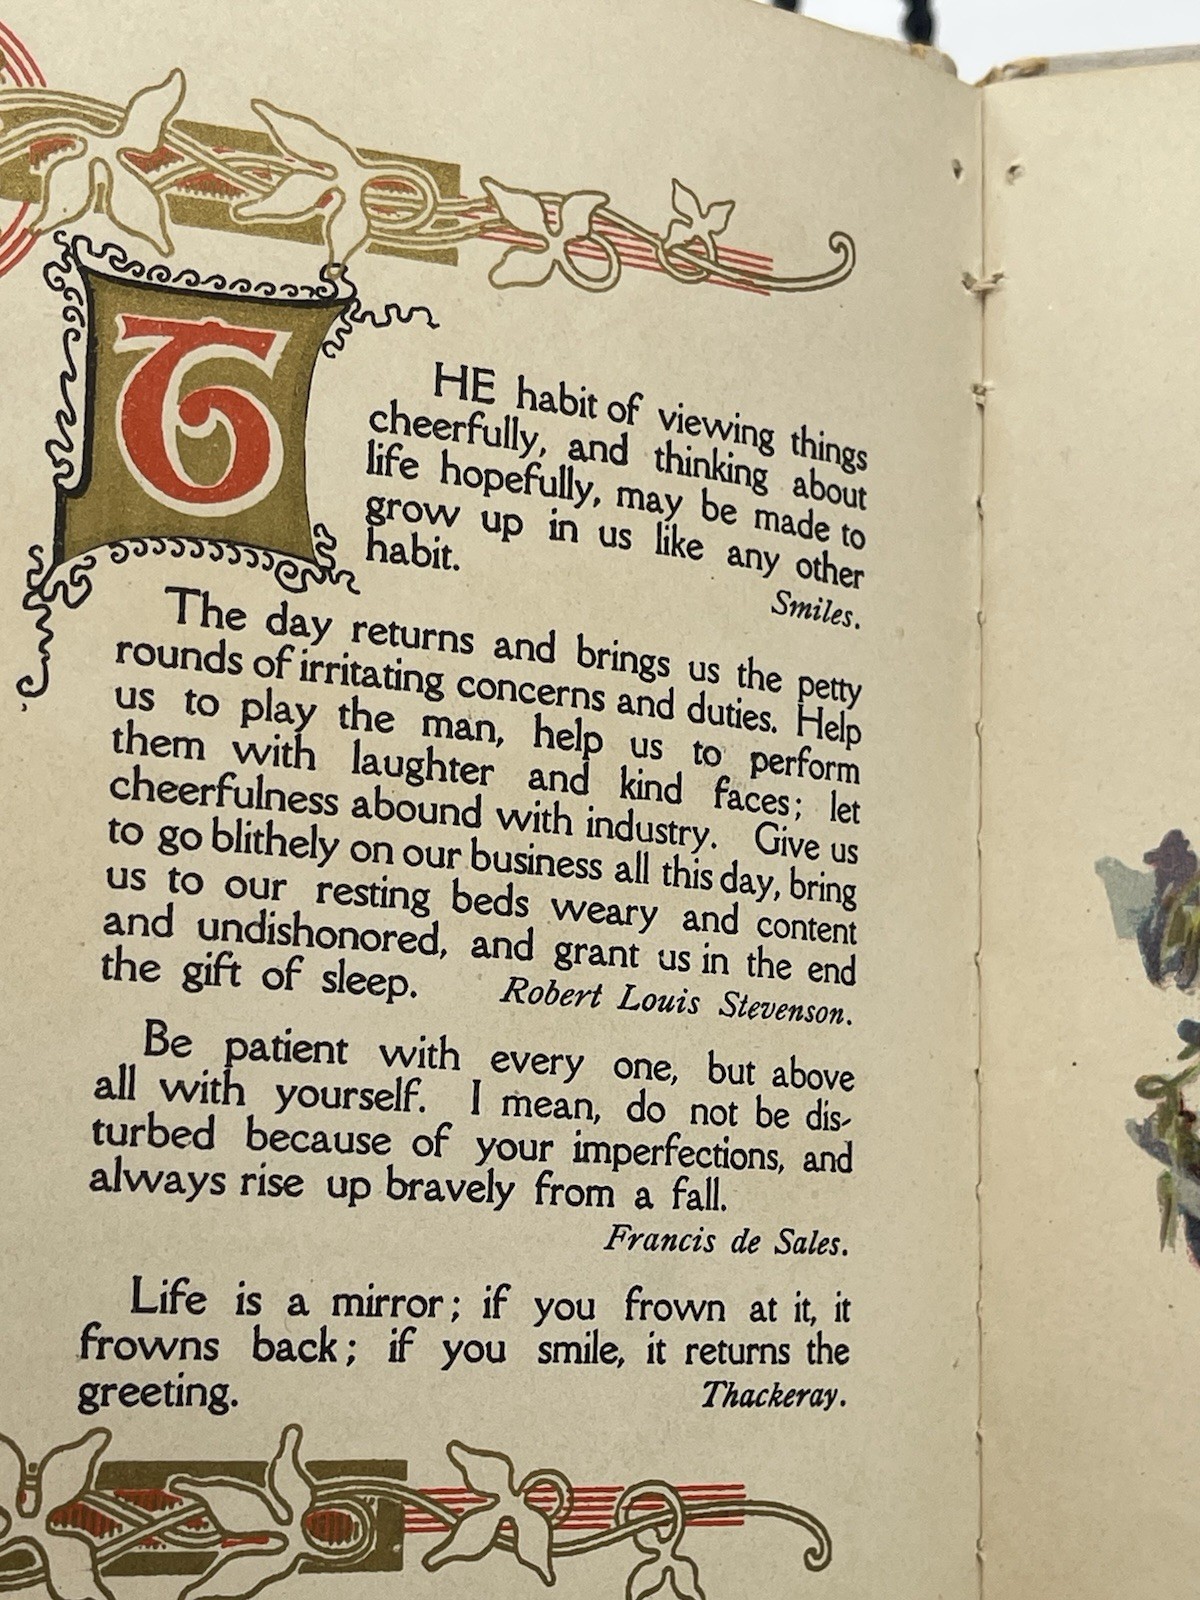 THE habit of viewing things
cheerfully, and thinking about
life hopefully, may be made to
grow up in us like any other
habit.
Smiles.
The day returns and brings us the petty
rounds of irritating concerns and duties. Help
us to play the man, help us to perform
them with laughter and kind faces; let
cheerfulness abound with industry. Give us
to go blithely on our business all this day, bring
us to our resting beds weary and content
and undishonored, and grant us in the end
the gift of sleep. Robert Louis Stevenson.
Be patient with every one, but above
all with yourself. I mean, do not be dis-
turbed because of your imperfections, and
always rise up bravely from a fall.
Francis de Sales.
Life is a mirror; if you frown at it, it
frowns back; if you smile, it returns the
greeting. Thackeray.